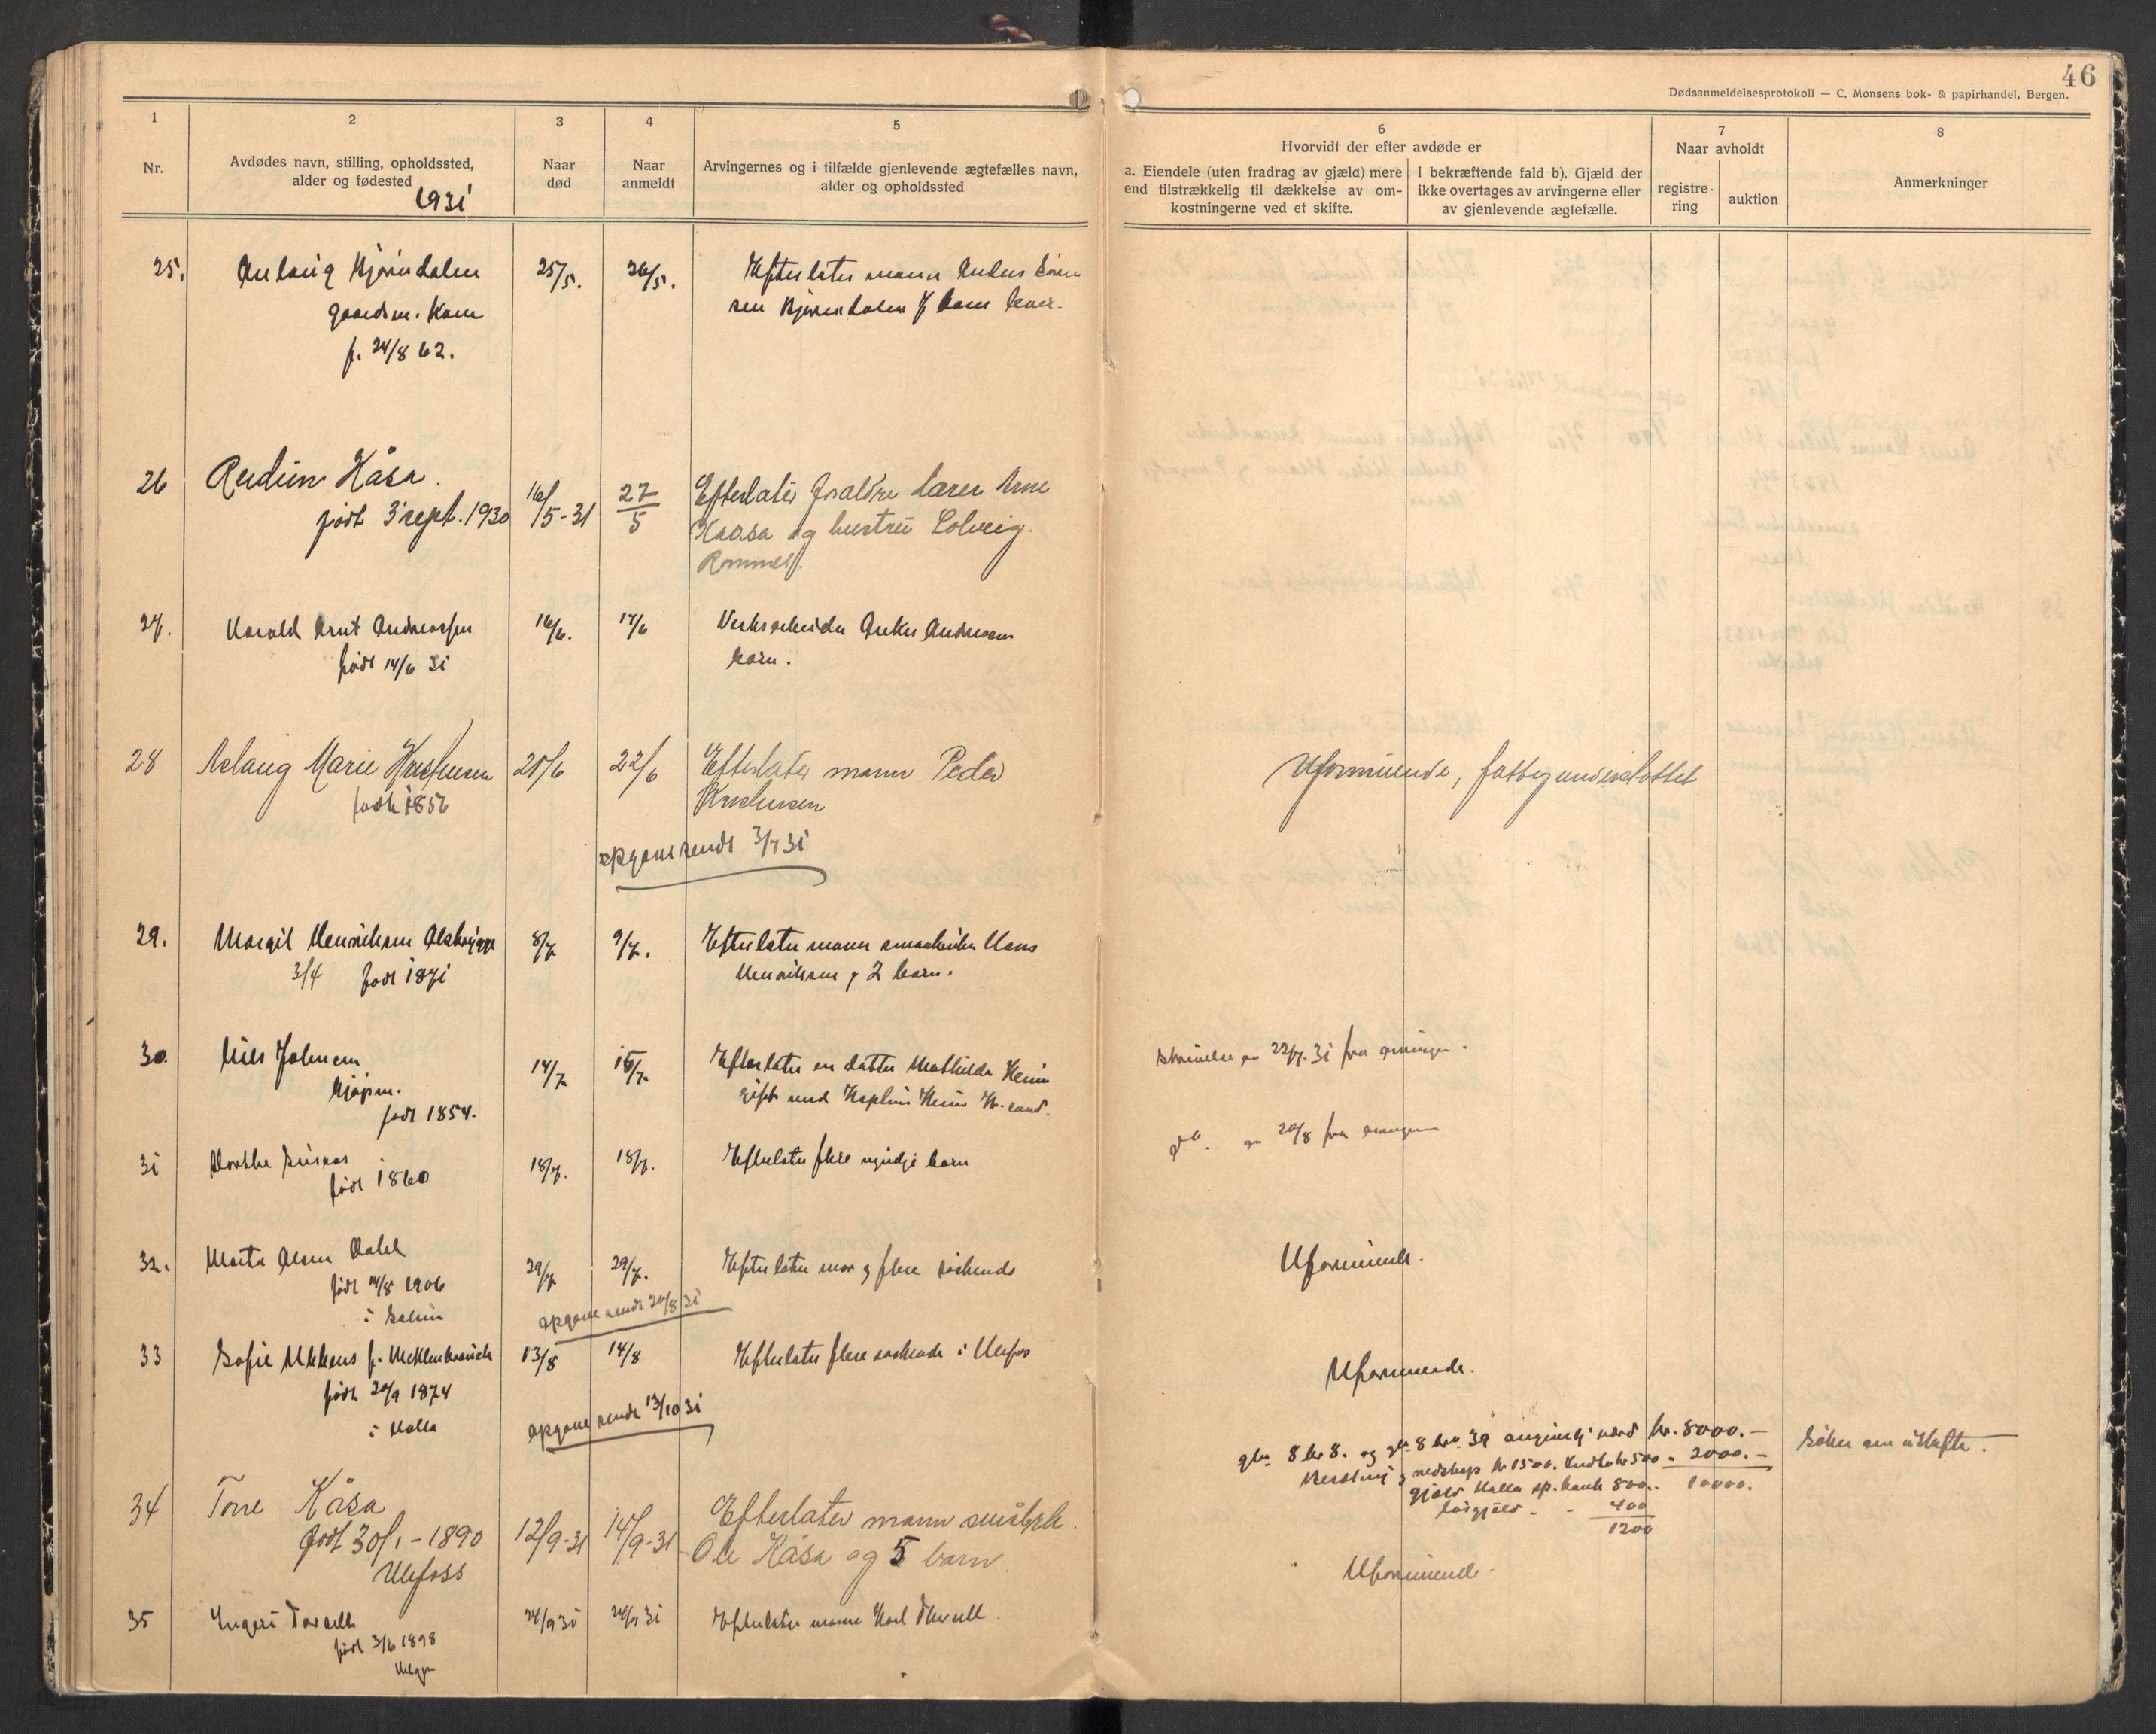 46
Dødsanmeldelsesprotokoll — C. Monsens bok- & papirhandel, Bergen.
1
2
3
4
5
6
7
8
Nr.
Avdødes navn, stilling, opholdssted,
alder og fødested
1931
Naar
død
Naar
anmeldt
Arvingernes og i tilfælde gjenlevende ægtefælles navn,
alder og opholdssted
Hvorvidt der efter avdøde er
a. Eiendele (uten fradrag av gjæld) mere
end tilstrækkelig til dækkelse av om-
kostningerne ved et skifte.
I bekræftende fald b). Gjæld der
ikke overtages av arvingerne eller
av gjenlevende ægtefælle.
Naar avholdt
registre-
ring
auktion
Anmerkninger
25. Anlaug Bjørndalen 25/5. 26/5. Efterlater mann Anders
sen Bjørndalen
gaardm. Kone
f. 24/8 62.
26 Audun Kåsa. 16/5-31 27/5 Efterlater foraldre lærer Arne
født 3 sept. 1930
Kaasa og hustru Solveig.
Rommes.
27. Harald Arnt Andreassen 16/6. 17/6 Verksarbeider Anker Andreassen
født 14/6 31 barn.
28 Aslaug Marie Kristensen 20/6 22/6 Efterlater mann Peder Uformuende, fattigunderstøttet
født 1856 Kristensen
opgave sendt 3/7 31
29. Margit Henriksen Ølsbrygge 8/7 9/7. Efterlater mann Hans
3/4 født 1871 Henriksen og 2 barn.
30. Nils Johnsen 14/7 15/7. Efterlater en datter Mathilde Skrivelse av 22/7. 31 fra arvingen.
Kjøpm. gift med
født 1854.
31 Dorthe 18/7. 18/7. Efterlater flere myndige barn do. av 20/8 fra arvingene
født 1860
32. Marta Olsen Dahl 29/7 29/7. Efterlater mor og flere søskende Uformuende.
født 14/8 1906
i Solum
opgave sendt 20/8 31
33 Sofie f. 13/8 14/8 Efterlater flere søskende i Ulefos Uformuende.
født 20/9 1874
i Holla
opgave sendt 13/10 31
gbn 8 br 8. og gbn 8 bno 39 verd kr. 8000.— Søker om utskifte.—
redskap kr 1500. Indbo kr 500 - 2000.—
gjæld Holla sp.bank 800.. 10000.
- 400
1200
34 Tone Kåsa 12/9-31 14/9-31 Efterlater mann småbrk.
født 30/1-1890 Ole Kåsa og 5 barn.
Ulefoss
Uformuende.
35 Ingeri 24/9 31 24/9 31 Efterlater mann Karl
født 3/6 1898
Helgen